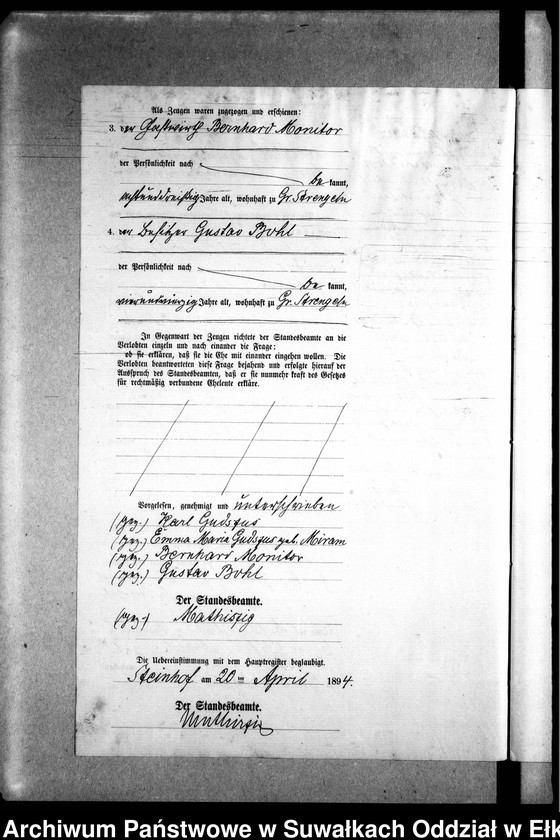 Als Zeugen waren zugezogen und erschienen:
3. der Gastwirth Bernhard Monitor
der Persönlichkeit nach
be kannt,
achtunddreißig Jahre alt, wohnhaft zu Gr. Strengeln
4. der Besitzer Gustav Bohl
der Persönlichkeit nach
be kannt,
vierundvierzig Jahre alt, wohnhaft zu Gr. Strengeln
In Gegenwart der Zeugen richtete der Standesbeamte an die
Verlobten einzeln und nach einander die Frage:
ob sie erklären, daß sie die Ehe mit einander eingehen wollen. Die
Verlobten beantworteten diese Frage bejahend und erfolgte hierauf der
Ausspruch des Standesbeamten, daß er sie nunmehr kraft des Gesetzes
für rechtmäßig verbundene Eheleute erkläre.
Vorgelesen, genehmigt und unterschrieben
(gez.) Karl Gudszus
(gez.) Emma Maria Gudszus geb. Miram
(gez.) Bernhard Monitor
(gez.) Gustav Bohl
Der Standesbeamte.
(gez.) Mathiszig
Die Uebereinstimmung mit dem Hauptregister beglaubigt.
Steinhof am 20 ten April 1894.
Der Standesbeamte.
Mathiszig
Archiwum Państwowe w Suwałkach Oddział w Ełk